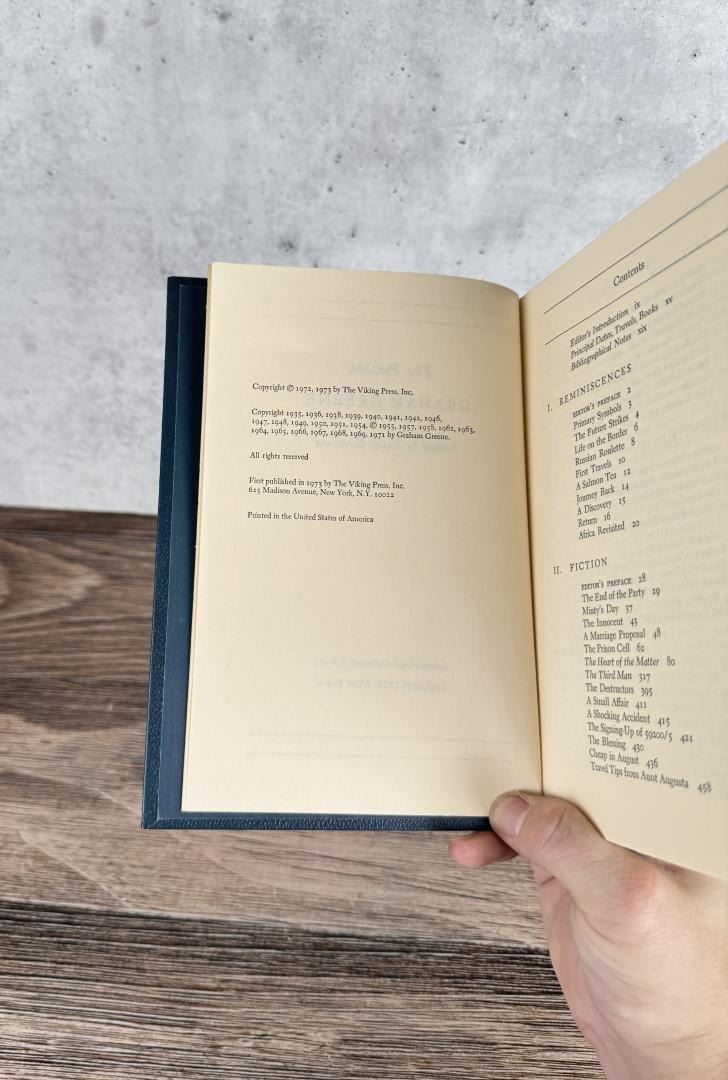 Copyright © 1972, 1973 by The Viking Press, Inc.
Copyright 1935, 1936, 1938, 1939, 1940, 1941, 1942, 1946,
1947, 1948, 1949, 1950, 1951, 1954, © 1955, 1957, 1958, 1962, 1963,
1964, 1965, 1966, 1967, 1968, 1969, 1971 by Graham Greene.
All rights reserved
First published in 1973 by The Viking Press, Inc.
625 Madison Avenue, New York, N.Y. 10022
Printed in the United States of America
Contents
Editor's Introduction ix
Principal Dates, Travels, Books xv
Bibliographical Notes xix
I. REMINISCENCES
EDITOR'S PREFACE 2
Primary Symbols 3
The Future Strikes 4
Life on the Border 6
Russian Roulette 8
First Travels 10
A Salmon Tea 12
Journey Back 14
A Discovery 15
Return 16
Africa Revisited 20
II. FICTION
EDITOR'S PREFACE 28
The End of the Party 29
Minty's Day 37
The Innocent 43
A Marriage Proposal 48
The Prison Cell 62
The Heart of the Matter 80
The Third Man 317
The Destructors 395
A Small Affair 411
A Shocking Accident 415
The Signing-Up of 59200/5 421
The Blessing 430
Cheap in August 436
Travel Tips from Aunt Augusta 458